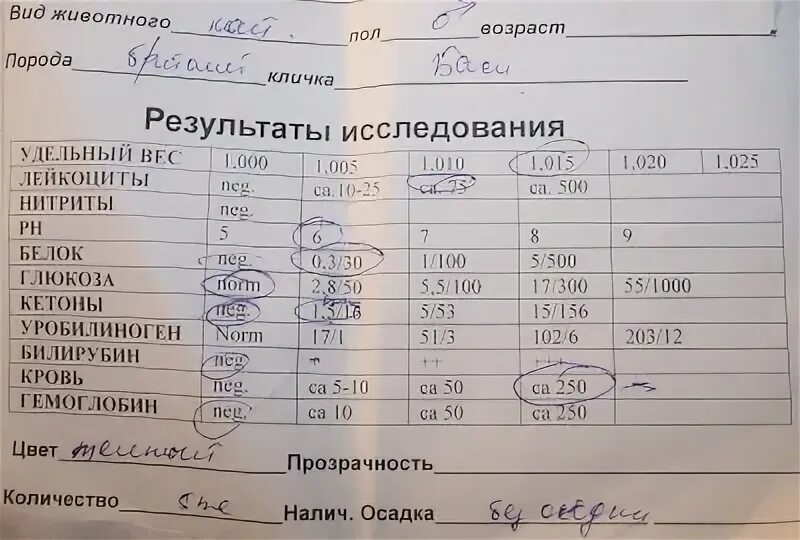 Вид животного кот. пол ♂ возраст
Порода британ кличка
Результаты исследования
УДЕЛЬНЫЙ ВЕС 1.000 1.005 1.010 1.015 1.020 1.025
ЛЕЙКОЦИТЫ neg. ca. 10-25 ca. 75 ca. 500
НИТРИТЫ neg.
PH 5 6 7 8 9
БЕЛОК neg. 0.3/30 1/100 5/500
ГЛЮКОЗА norm 2,8/50 5,5/100 17/300 55/1000
КЕТОНЫ neg. 1,5/16 5/53 15/156
УРОБИЛИНОГЕН Norm 17/1 51/3 102/6 203/12
БИЛИРУБИН neg + ++ +++
КРОВЬ neg. ca 5-10 ca 50 ca 250
ГЕМОГЛОБИН neg. ca 10 ca 50 ca 250
Цвет Прозрачность
Количество 5 мл Налич. Осадка без осадка